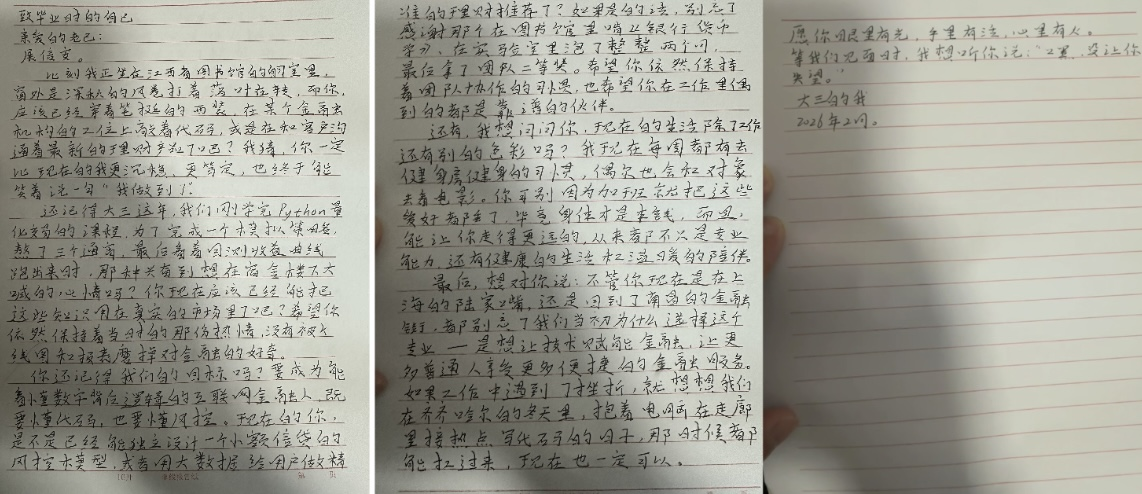 致毕业时的自己
亲爱的老己:
展信安。
此刻我正坐在江西省图书馆的自习室里,
窗外是深秋的风卷着落叶在转,而你,
应该已经穿着笔挺的西装,在某个金融
机构的工位上敲着代码,或是在和客户沟
通着最新的理财产品了吧?我猜,你一定
比现在的我更沉稳,更笃定,也终于能
笑着说一句"我做到了"。
还记得大三这年,我们刚学完Python量
化交易的课程,为了完成一个模拟策略,
熬了三个通宵,最后看着回测收益曲线
跑出来时,那种兴奋到想在宿舍楼下大
喊的心情吗?你现在应该已经能把
这些知识用在真实的市场里了吧?希望你
依然保持着当时的那份热情,没有被K
线图和报表磨掉对金融的好奇。
你还记得我们的目标吗?要成为能
看懂数字背后逻辑的互联网金融人,既
要懂代码,也要懂风控。现在的你,
是不是已经能独立设计一个小额信贷的
风控模型,或者用大数据给用户做精
准的理财推荐了?如果是的话,别忘了
感谢那个在图书馆里啃《银行货币
学》,在实验室里泡了整整两个月,
最后拿了团队二等奖。希望你依然保持
着团队协作的习惯,也希望你在工作里遇
到的都是靠谱的伙伴。
还有,我想问问你,现在的生活除了工作
还有别的色彩吗?我现在每周都有去
健身房健身的习惯,偶尔也会和对象
去看电影。你可别因为加班就把这些
爱好都丢了,毕竟身体才是本钱,而且,
能让你走得更远的,从来都不只是专业
能力,还有健康的生活和温暖的陪伴。
最后,想对你说:不管你现在是在上
海的陆家嘴,还是回到了南昌的金融
街,都别忘了我们当初为什么选择这个
专业——是想让技术赋能金融,让更
多普通人享受更多便捷的金融服务。
如果工作中遇到了挫折,就想想我们
在齐齐哈尔的冬天里,抱着电脑在走廊
里接热点写代码的日子,那时候都
能扛过来,现在也一定可以。
愿你眼里有光,手里有活,心里有人。
等我们见面时,我想听你说:"嘿,没让你
失望。"
大三的我
2026年2月。